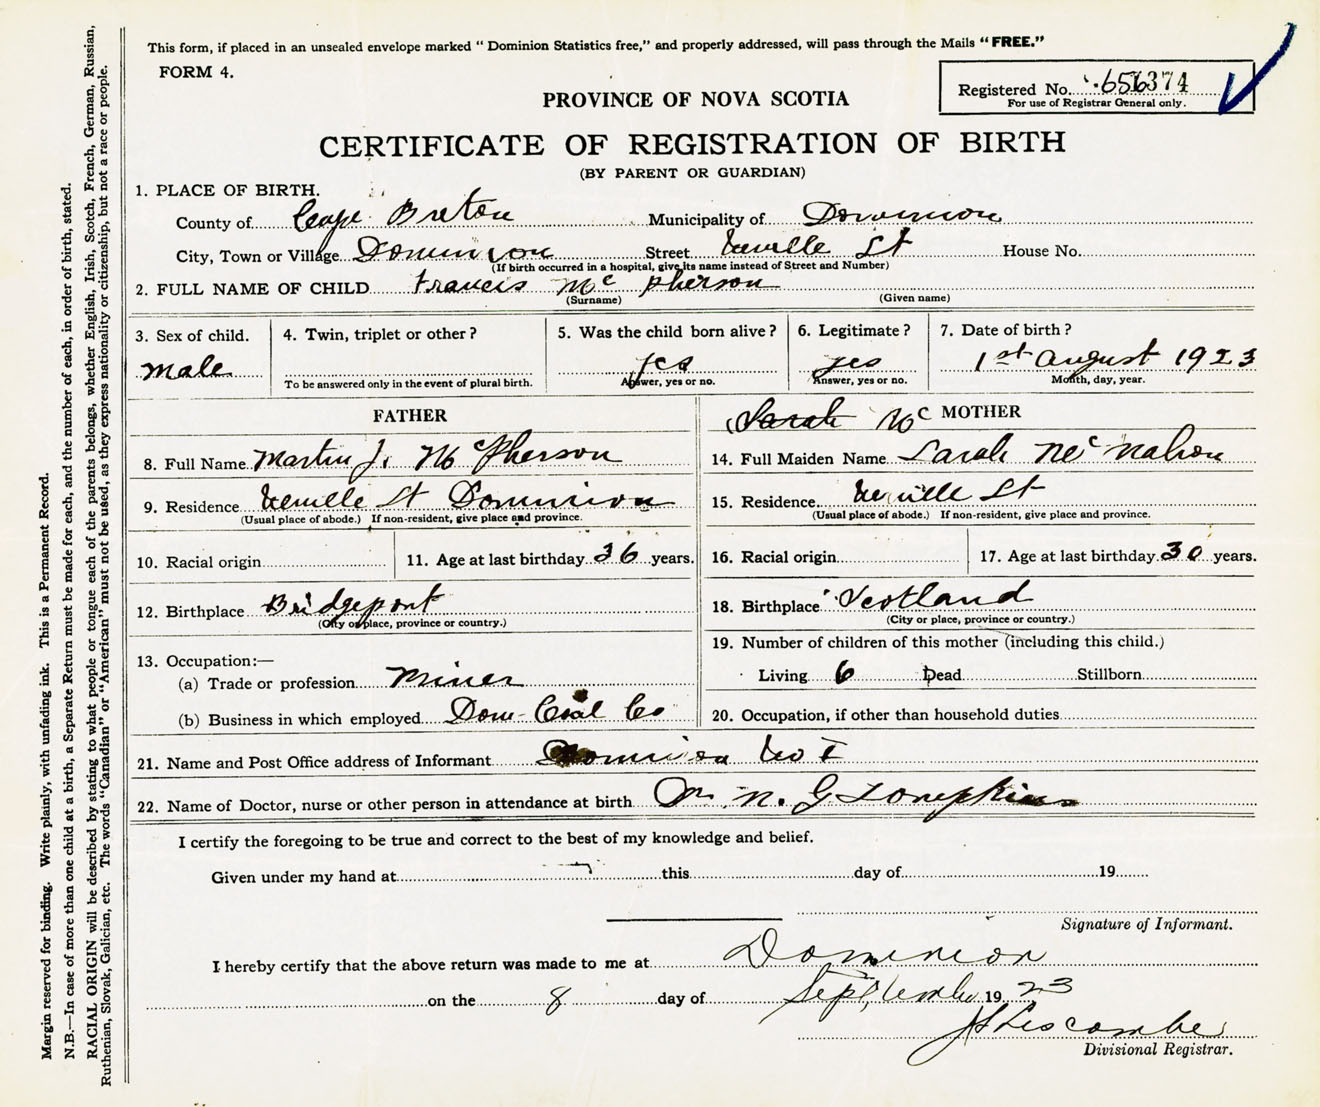 This form, if placed in an unsealed envelope marked " Dominion Statistics free," and properly addressed, will pass through the Mails " FREE."
FORM 4.
Registered No. 656374
For use of Registrar General only.
PROVINCE OF NOVA SCOTIA
CERTIFICATE OF REGISTRATION OF BIRTH
(BY PARENT OR GUARDIAN)
1. PLACE OF BIRTH.
County of Cape Breton Municipality of Dominion
City, Town or Village Dominion Street Neville St House No.
(If birth occurred in a hospital, give its name instead of Street and Number)
2. FULL NAME OF CHILD Francis Mc Pherson
(Surname) (Given name)
3. Sex of child. 4. Twin, triplet or other ? 5. Was the child born alive ? 6. Legitimate ? 7. Date of birth ?
male yes yes 1st August 1923
To be answered only in the event of plural birth. Answer, yes or no. Answer, yes or no. Month, day, year.
FATHER
8. Full Name Martin J. McPherson
9. Residence Neville St Dominion
(Usual place of abode.) If non-resident, give place and province.
10. Racial origin 11. Age at last birthday 36 years.
12. Birthplace Bridgeport
(City or place, province or country.)
13. Occupation:—
(a) Trade or profession Miner
(b) Business in which employed Dom- Coal Co
Sarah Mc MOTHER
14. Full Maiden Name Sarah McMahon
15. Residence Neville St
(Usual place of abode.) If non-resident, give place and province.
16. Racial origin 17. Age at last birthday 30 years.
18. Birthplace Scotland
(City or place, province or country.)
19. Number of children of this mother (including this child.)
Living 6 Dead Stillborn
20. Occupation, if other than household duties
21. Name and Post Office address of Informant Dominion No 1
22. Name of Doctor, nurse or other person in attendance at birth Dr. N. G Tompkins
I certify the foregoing to be true and correct to the best of my knowledge and belief.
Given under my hand at this day of 19
Signature of Informant.
I hereby certify that the above return was made to me at Dominion
on the 8 day of September 1923
Liscombe
Divisional Registrar.
Margin reserved for binding. Write plainly, with unfading ink. This is a Permanent Record.
N.B.—In case of more than one child at a birth, a Separate Return must be made for each, and the number of each, in order of birth, stated.
RACIAL ORIGIN will be described by stating to what people or tongue each of the parents belongs, whether English, Irish, Scotch, French, German, Russian,
Ruthenian, Slovak, Galician, etc. The words "Canadian" or "American" must not be used, as they express nationality or citizenship, but not a race or people.